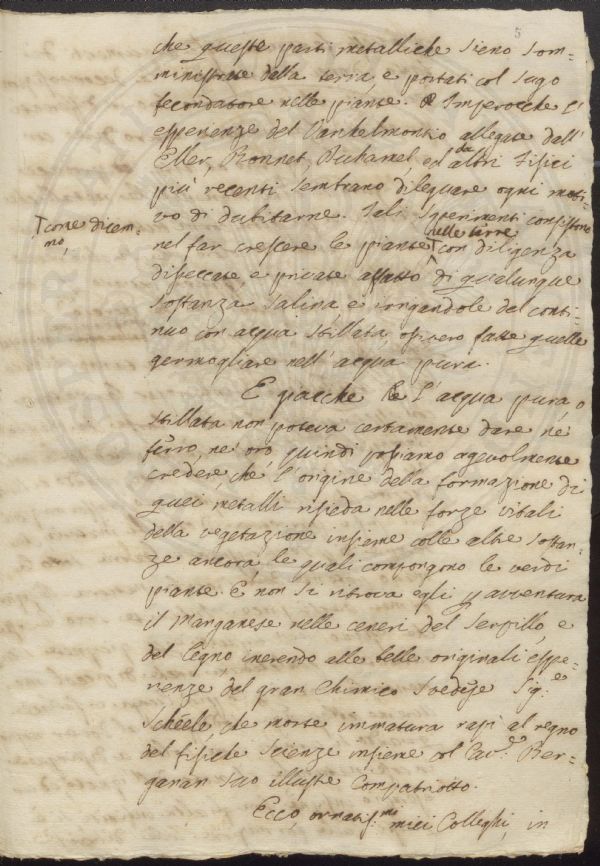 5
che queste parti metalliche sieno som=
ministrate dalla terra e portati col sugo
fecondatore nelle piante. Imperocchè l'
esperienze del Vanhelmontio allegate dall'
Eller, Bonnet, Duhamel, ed da altri Fisici
più recenti sembrano dileguare ogni moti=
vo di dubitarne. Tali sperimenti consistono
come dicem=
mo,
nel far crescere le piante nelle terre con diligenza
disseccate e private affatto di qualunque
sostanza salina, e irrigandole del conti=
nuo con acqua stillata, ovvero fatte quelle
germogliare nell' acqua pura.
E giacchè l'acqua pura, o
stillata non poteva certamente dare nè
ferro, nè oro, quindi possiamo agevolmente
credere, che l'origine della formazione di
quei metalli risieda nelle forze vitali
della vegetazione insieme colle altre sostan=
ze ancora, le quali compongono le verdi
piante. E non si ritrova egli p avventura
il Manganese nelle ceneri del Serpillo, e
del Legno, inerendo alle belle originali espe=
rienze del gran Chimico Svedese Sig.e
Schéele, che morte immatura rapì al regno
del fisiche scienze insieme col Cav.e Ber=
gman suo illustre Compatriotto.
Ecco, ornatiss.mi miei Colleghi, in